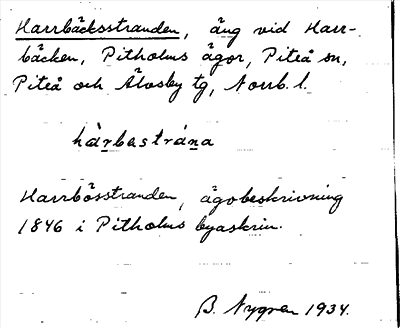 Harrbäcksstranden, äng vid Harr-
bäcken, Pitholms ägor, Piteå sn,
Piteå och Älvsby tg, Norrb. l.
hàrbastrána
Harrbösstranden, ägobeskrivning
1846 i Pitholms byaskrin.
B. Nygren 1934.